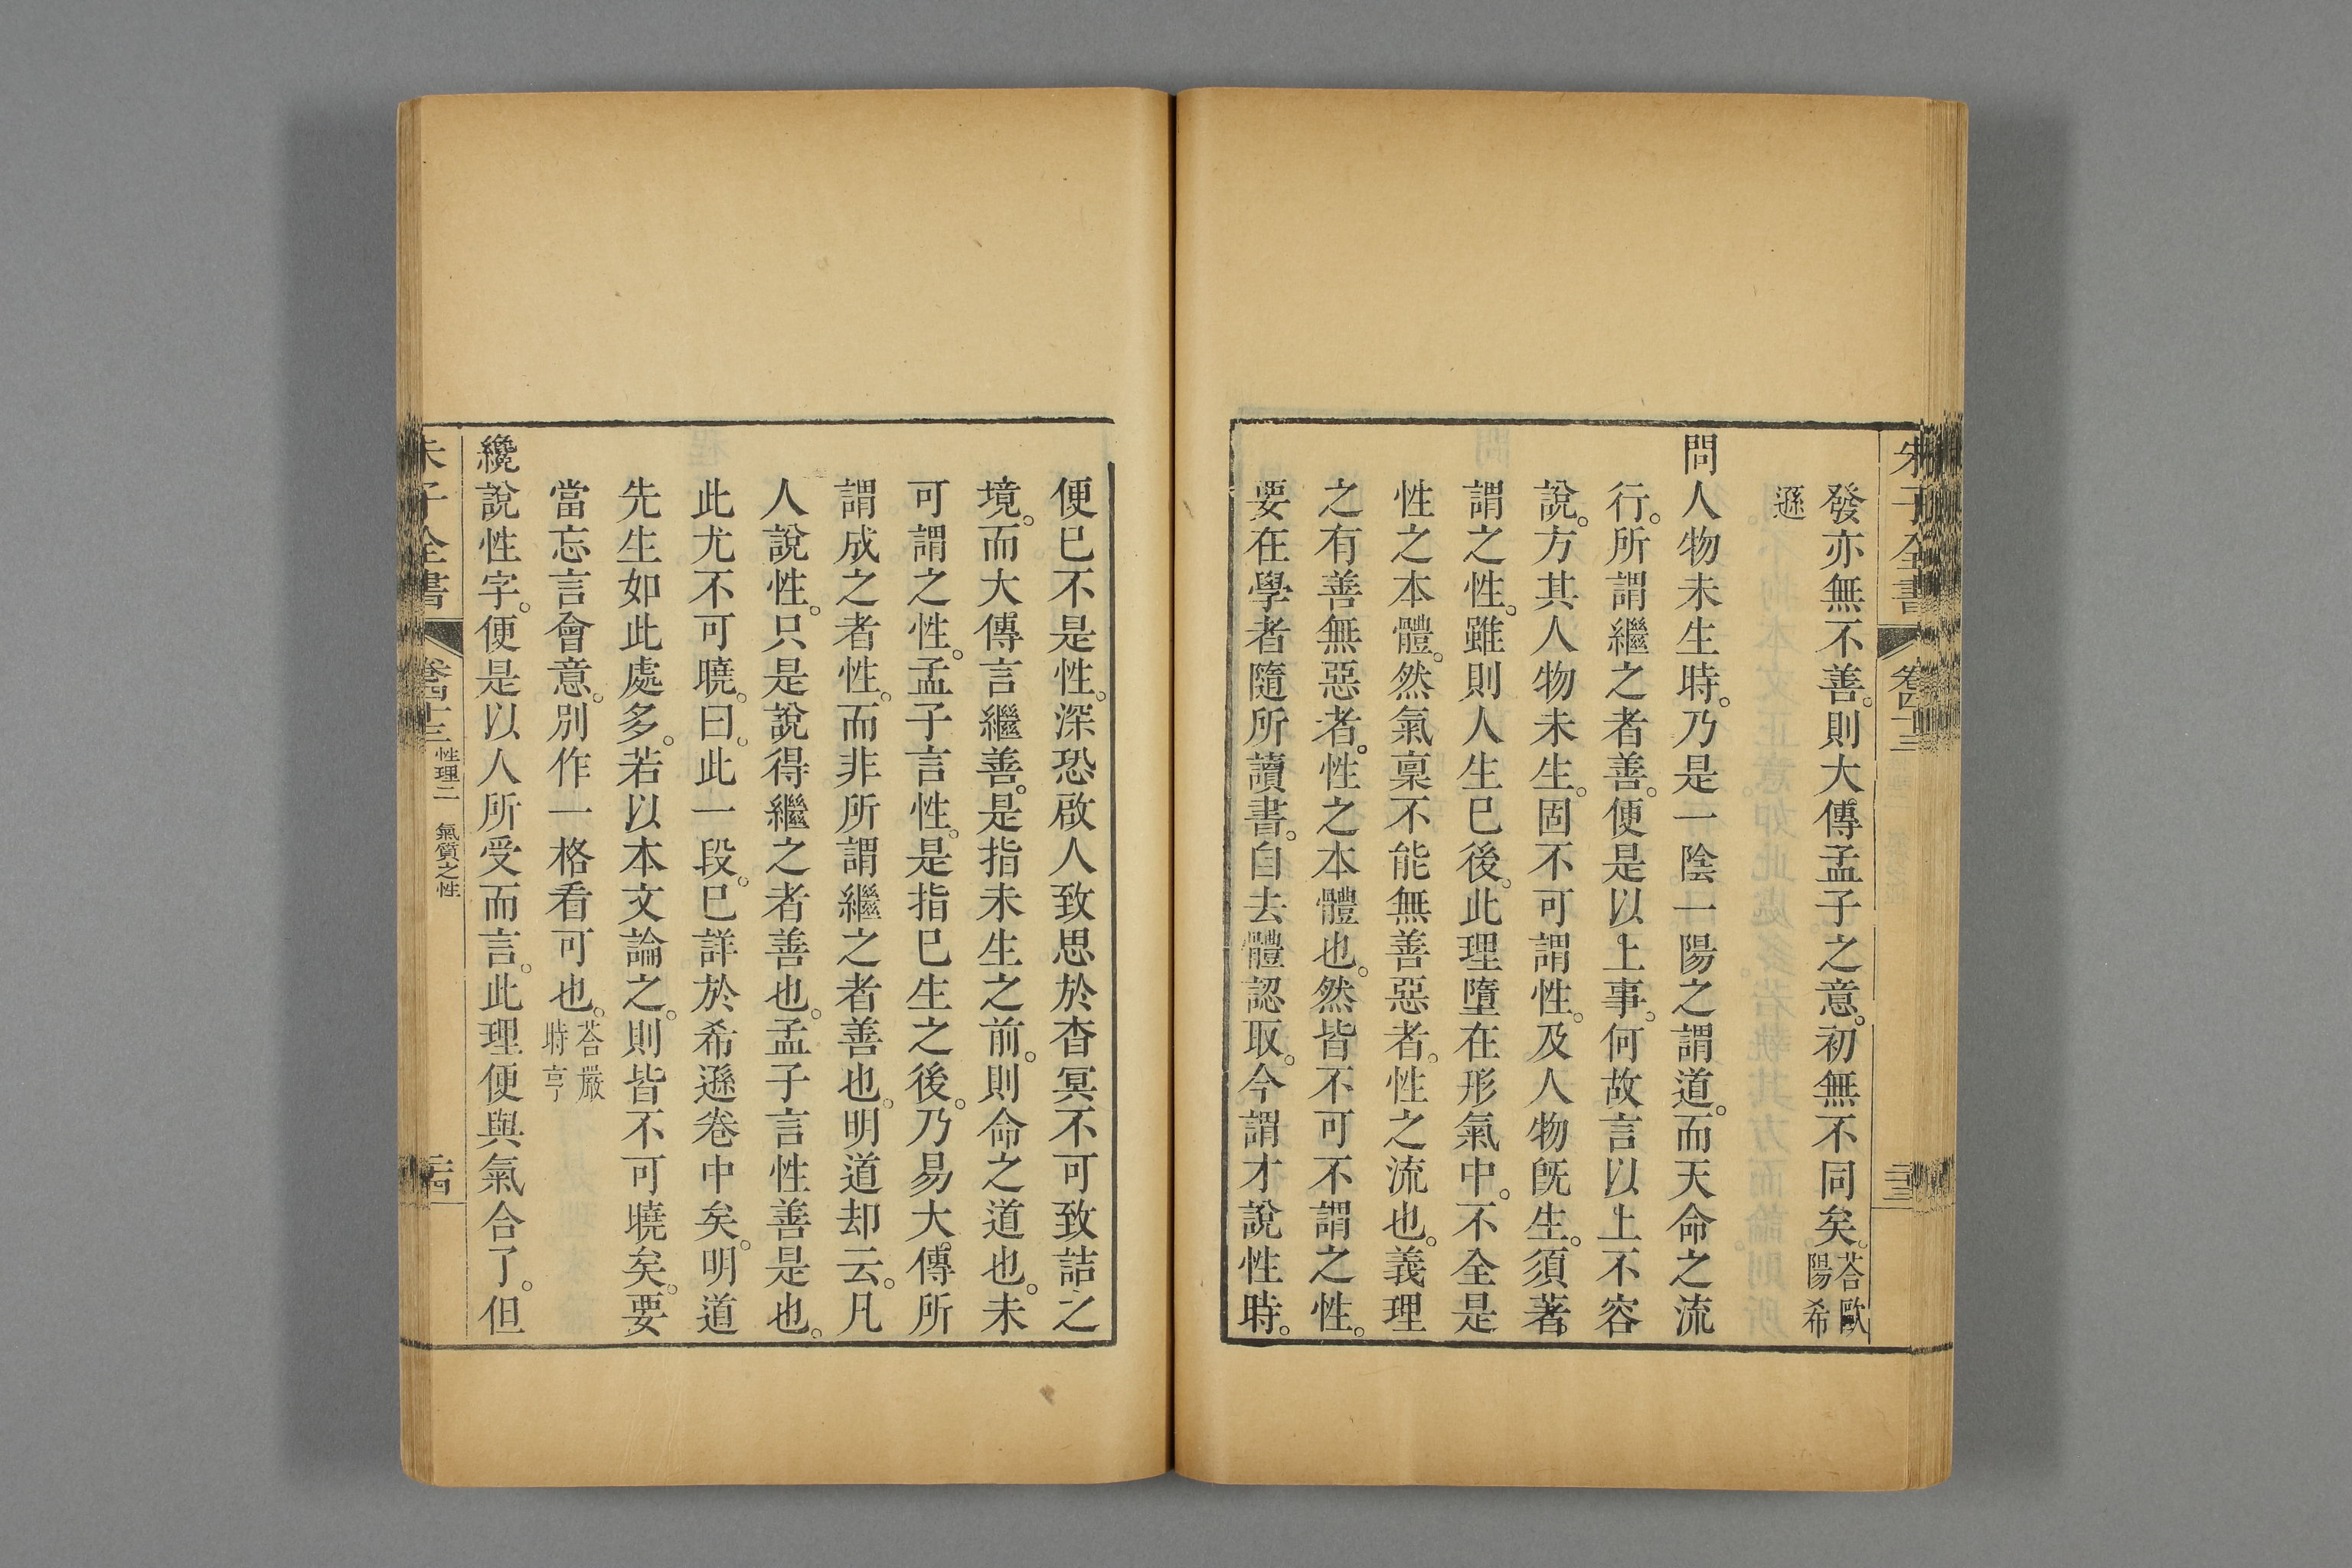 朱子全書 卷四十二 二十三
發亦無不善。則大傳孟子之意。初無不同矣。荅歐陽希
遜
問人物未生時。乃是一陰一陽之謂道。而天命之流
行。所謂繼之者善。便是以上事。何故言以上不容
說。方其人物未生。固不可謂性。及人物旣生。須著
謂之性。雖則人生已後。此理墮在形氣中。不全是
性之本體。然氣稟不能無善惡者。性之流也。義理
之有善無惡者。性之本體也。然皆不可不謂之性。
要在學者隨所讀書。自去體認取。今謂才說性時。
便已不是性。深恐啟人致思於杳冥不可致詰之
境。而大傳言繼善。是指未生之前。則命之道也。未
可謂之性。孟子言性。是指已生之後。乃易大傳所
謂成之者性。而非所謂繼之者善也。明道却云。凡
人說性。只是說得繼之者善也。孟子言性善是也。
此尤不可曉。曰。此一段。已詳於希遜卷中矣。明道
先生如此處多。若以本文論之。則皆不可曉矣。要
當忘言會意。別作一格看可也。荅嚴時亨
纔說性字。便是以人所受而言。此理便與氣合了。但
朱子全書 卷四十二 性理二 氣質之性 二十四